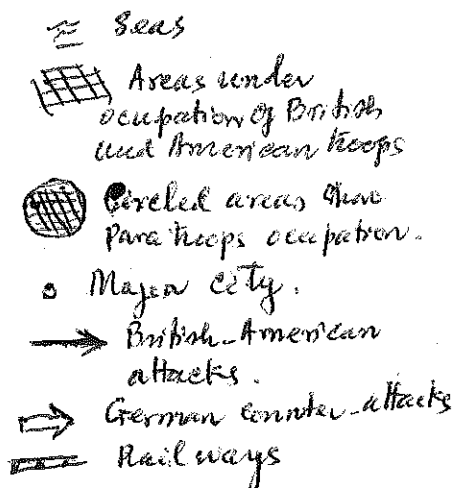 Seas
Areas under
ocupation of British
and American troops
Circled areas show
Para troops ocupation.
Major City.
British-American
attacks.
German counter-attacks
Railways